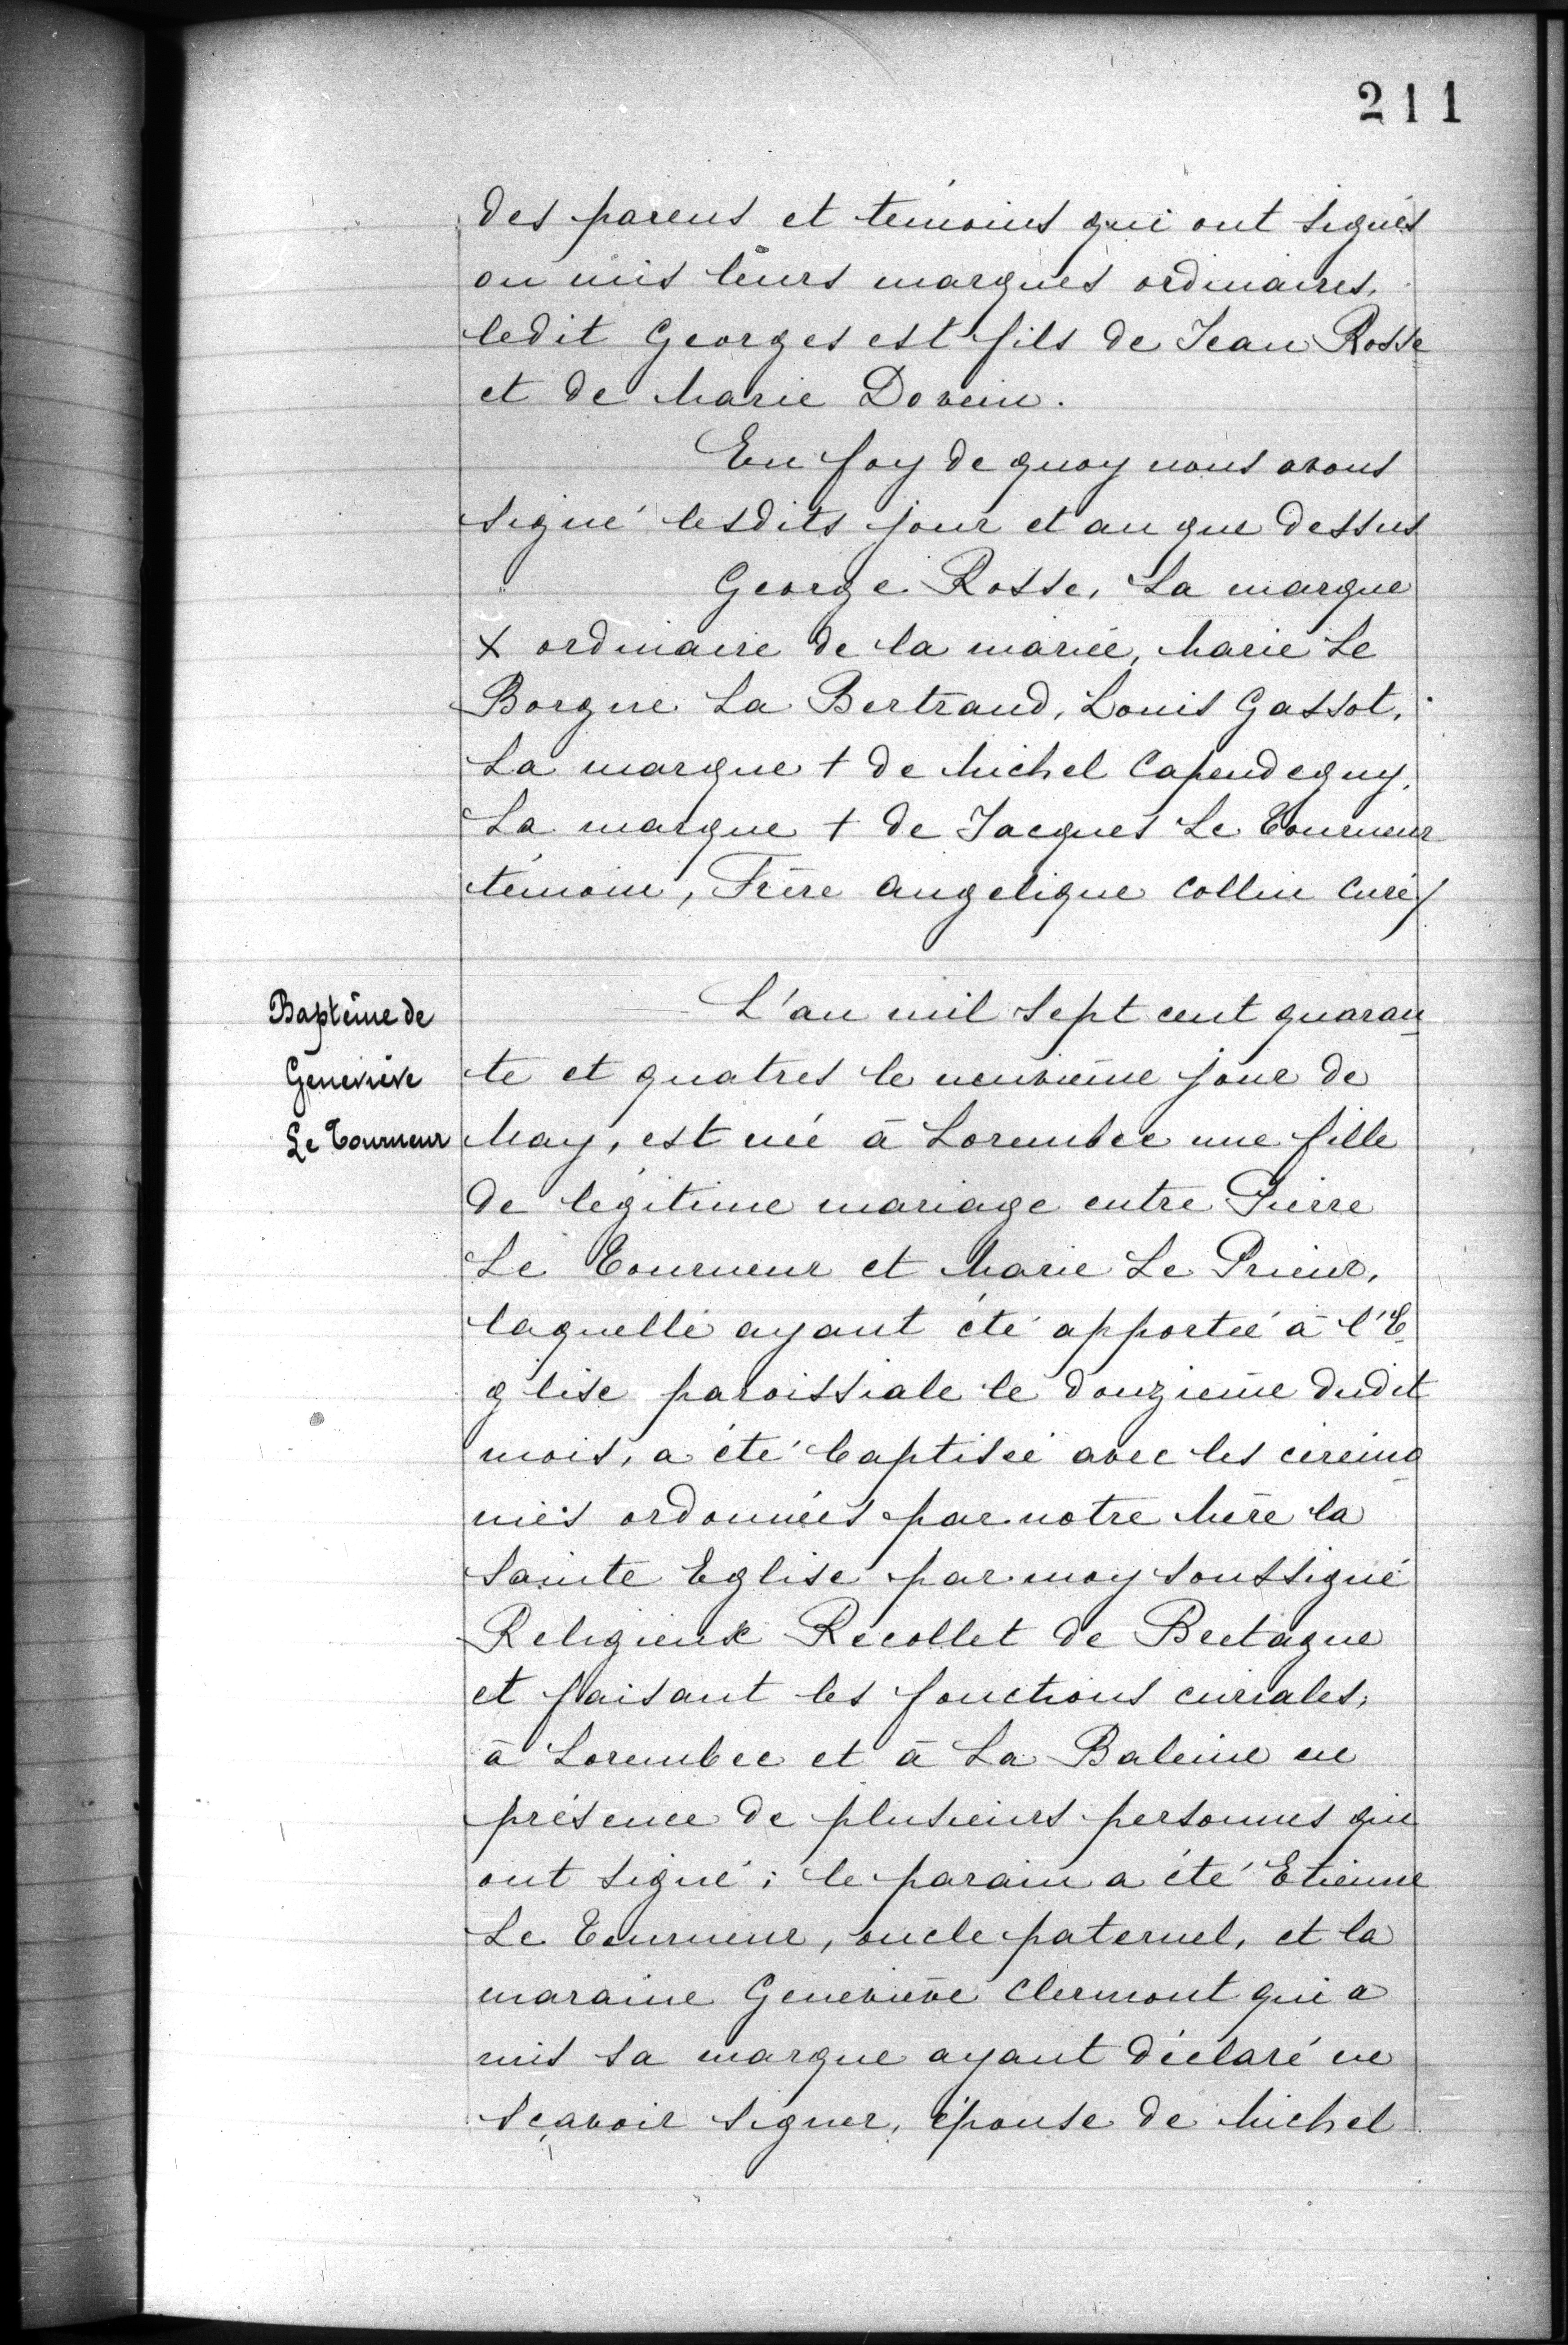 211
des parens et témoins qui ont signés
ou mis leurs marques ordinaires,
ledit Georges est fils de Jean Rosse
et de Marie Dovein.
En foy de quoy nous avons
signé lesdits jour et an que dessus
George Rosse, La marque
x ordinaire de la mariée, Marie Le
Borgne La Bertrand, Louis Gassot,
La marque + de Michel Capendeguy,
La marque + de Jacques Le Tourneur
témoin, Frère Angelique Collin Curé/
Baptême de
Geneviève
Le Tourneur
L'an mil sept cent quaran
te et quatres le neuvième jour de
May, est née à Lorembec une fille
de légitime mariage entre Pierre
Le Tourneur et Marie Le Prieur,
laquelle ayant été apportée à l'E
glise paroissiale le douzième dudit
mois, a été baptisée avec les cérémo
niés ordonnées par notre Mère la
Sainte Eglise par moy soussigné
Religieux Recollet de Bretagne
et faisant les fonctions curiales,
à Lorembec et à La Baleine en
présence de plusieurs personnes qui
ont signé; le parain a été Etienne
Le Tourneur, oncle paternel, et la
maraine Geneviève Clermont qui a
mis sa marque ayant déclaré ne
sçavoir signer, épouse de Michel